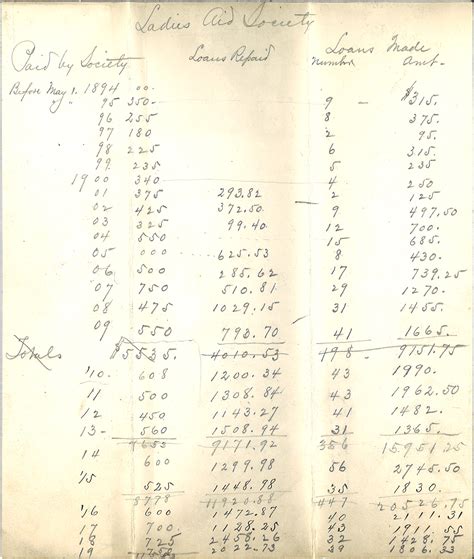 Ladies Aid Society
Paid by Society Loans Repaid Loans Made
number Amt.
Before May 1. 1894 00
95 350- 9 $315.
96 255 8 375.
97 180 2 95.
98 225 6 315.
99. 235 5 235
1900 340 4 250
01 375 293.82 2 125
02 425 372.50 9 497.50
03 325 99.40 12 700.
04 550 15 685.
05 000 625.53 8 430.
06 500 285.62 17 739.25
07 750 510.81 29 1270.
08 475 1029.15 31 1455.
09 550 793.70 41 1665.
Totals $5535. 4010.53 198 9151.75
'10 608 1200.34 43 1990.
11 500 1308.84 43 1962.50
12 450 1143.27 41 1482.
13- 560 1508.94 31 1365.
7653 9171.92 356 15951.25
14 600 1299.98 56 2745.50
'15 525 1448.98 35 1830.
8778 11920.88 447 20526.75
'16 600 1472.87 40 2111.31
17 700. 1128.25 43 1911.55
18 725 2458.26 32 1428.75
19 2022.73